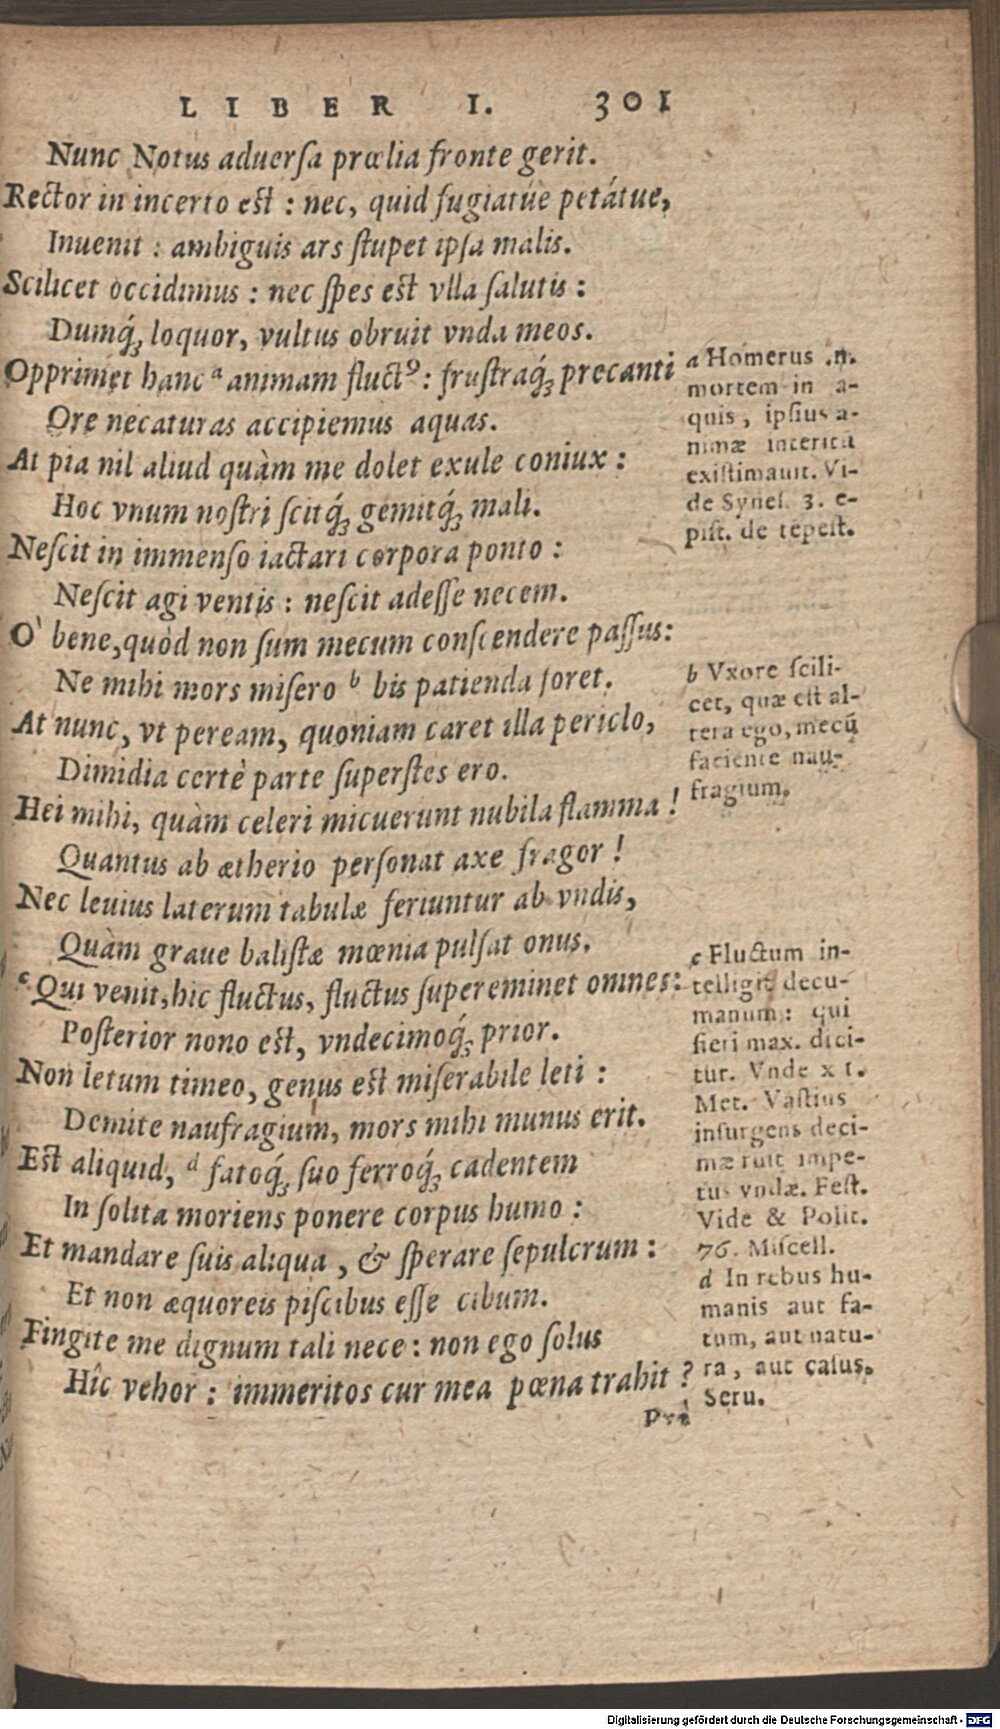 LIBER I. 301
Nunc Notus aduersa prælia fronte gerit.
Rector in incerto est : nec, quid fugiatúe petátue,
Inuenit : ambiguis ars stupet ipsa malis.
Scilicet occidimus : nec spes est vlla salutis :
Dumq́ꝫ loquor, vultus obruit vnda meos.
Opprimet hanc ᵃ animam fluctꝰ : frustraq́ꝫ precanti
Ore necaturas accipiemus aquas.
At pia nil aliud quàm me dolet exule coniux :
Hoc vnum nostri scitq́ꝫ gemitq́ꝫ mali.
Nescit in immenso iactari corpora ponto :
Nescit agi ventis : nescit adesse necem.
O` bene, quòd non sum mecum conscendere passus:
Ne mihi mors misero ᵇ bis patienda foret.
At nunc, vt peream, quoniam caret illa periclo,
Dimidia certè parte superstes ero.
Hei mihi, quàm celeri micuerunt nubila flamma !
Quantus ab ætherio personat axe fragor !
Nec leuius laterum tabulæ feriuntur ab vndis,
Quàm graue balistæ mœnia pulsat onus.
ᶜ Qui venit, hic fluctus, fluctus supereminet omnes:
Posterior nono est, vndecimoq́ꝫ prior.
Non letum timeo, genus est miserabile leti :
Demite naufragium, mors mihi munus erit.
Est aliquid, ᵈ fatoq́ꝫ suo ferroq́ꝫ cadentem
In solita moriens ponere corpus humo :
Et mandare suis aliqua, & sperare sepulcrum :
Et non æquoreis piscibus esse cibum.
Fingite me dignum tali nece : non ego solus
Hîc vehor : immeritos cur mea pœna trahit ?
a Homerus .n.
mortem in a-
quis, ipsius a-
nimæ interitū
existimauit. Vi-
de Synes. 3. e-
pist. de tēpest.
b Vxore scili-
cet, quæ est al-
tera ego, mecū
faciente nau-
fragium.
c Fluctum in-
telligit decu-
manum : qui
fieri max. dici-
tur. Vnde x I.
Met. Vastius
insurgens deci-
mæ ruit impe-
tus vndæ. Fest.
Vide & Polit.
76. Miscell.
d In rebus hu-
manis aut fa-
tum, aut natu-
ra, aut casus.
Seru.
Digitalisierung gefördert durch die Deutsche Forschungsgemeinschaft - DFG